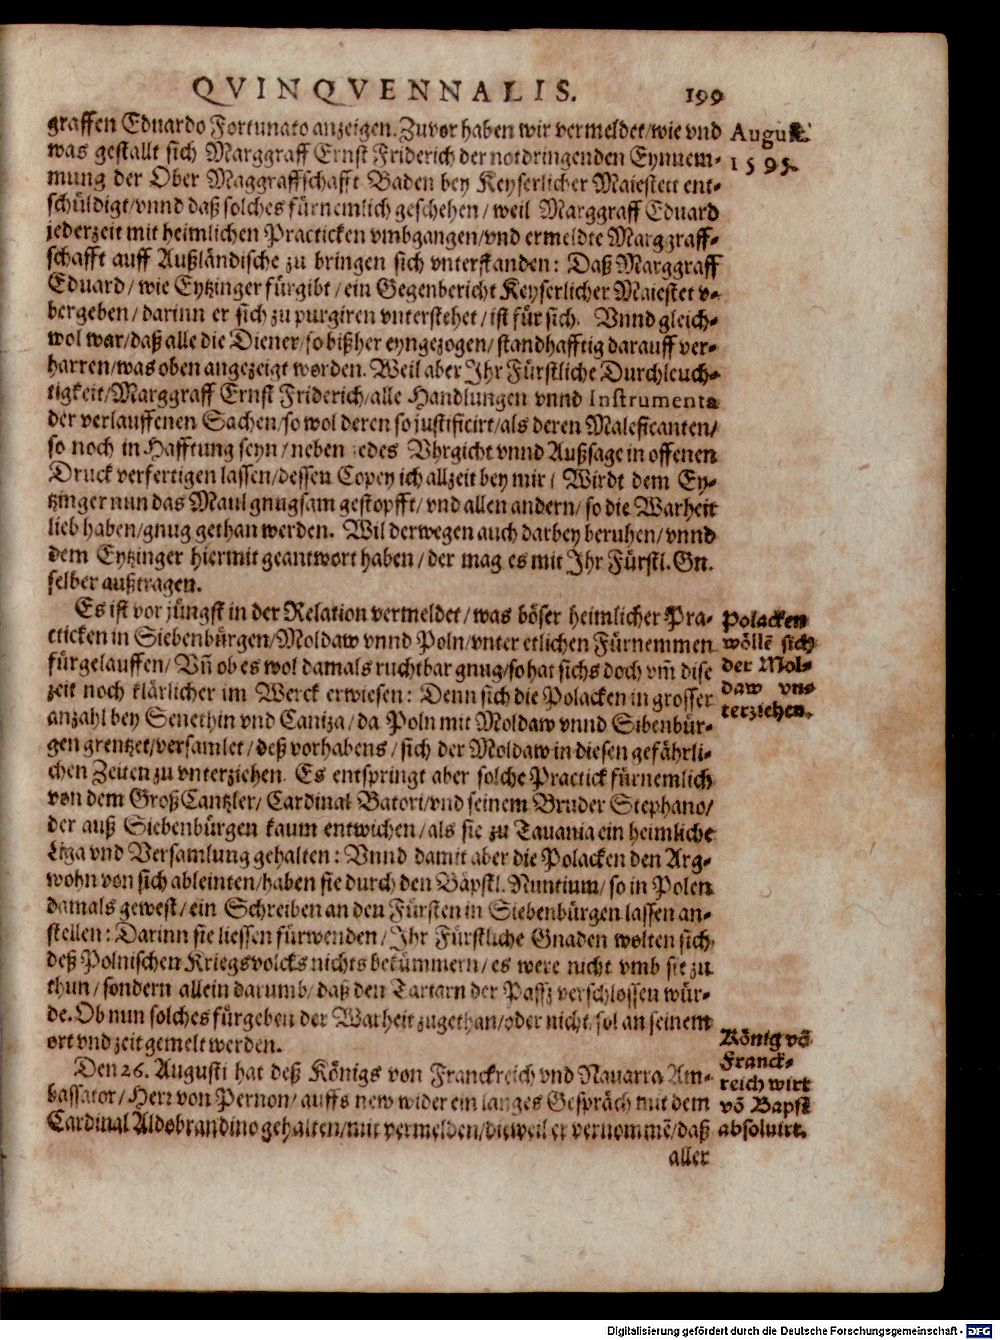 QVINQVENNALIS. 199
graffen Eduardo Fortunato anzeigen. Zuvor haben wir vermeldet/wie vnd
was gestallt sich Marggraff Ernst Friderich der notdringenden Eynnem-
mung der Ober Maggraffschafft Baden bey Keyserlicher Maiestett ent-
schüldigt/vnnd daß solches fürnemlich geschehen/ weil Marggraff Eduard
jederzeit mit heimlichen Practicken vmbgangen/vnd ermeldte Marggraff-
schafft auff Außländische zu bringen sich vnterstanden: Daß Marggraff
Eduard/ wie Eytzinger fürgibt/ ein Gegenbericht Keyserlicher Maiestet v-
bergeben/ darinn er sich zu purgiren vnterstehet/ ist für sich. Vnnd gleich-
wol war/daß alle die Diener/so bißher eyngezogen/ standhafftig darauff ver-
harren/was oben angezeigt worden. Weil aber Jhr Fürstliche Durchleuch-
tigkeit/Marggraff Ernst Friderich/alle Handlungen vnnd Instrumenta
der verlauffenen Sachen/so wol deren so justificirt/als deren Maleficanten/
so noch in Hafftung seyn/ neben jedes Vhrgicht vnnd Außsage in offenen
Druck verfertigen lassen/dessen Copey ich allzeit bey mir/ Wirdt dem Ey-
tzinger nun das Maul gnugsam gestopfft/ vnd allen andern/ so die Warheit
lieb haben/gnug gethan werden. Wil derwegen auch darbey beruhen/vnnd
dem Eytzinger hiermit geantwort haben/ der mag es mit Jhr Fürstl. Gn.
selber außtragen.
Es ist vor jüngst in der Relation vermeldet/ was böser heimlicher Pra-
cticken in Siebenbürgen/Moldaw vnnd Poln/vnter etlichen Fürnemmen
fürgelauffen/ Vñ ob es wol damals ruchtbar gnug/so hat sichs doch vm̃ dise
zeit noch klärlicher im Werck erwiesen: Denn sich die Polacken in grosser
anzahl bey Senethin vnd Caniza/ da Poln mit Moldaw vnnd Sibenbür-
gen grentzet/versamlet/ deß vorhabens/ sich der Moldaw in diesen gefährli-
chen Zeiten zu vnterziehen. Es entspringt aber solche Practick fürnemlich
von dem Groß Cantzler/ Cardinal Batori/vnd seinem Bruder Stephano/
der auß Siebenbürgen kaum entwichen/als sie zu Tavania ein heimliche
Liga vnd Versamlung gehalten: Vnnd damit aber die Polacken den Arg-
wohn von sich ableinten/haben sie durch den Bäpstl. Nuntium/ so in Polen
damals gewest/ein Schreiben an den Fürsten in Siebenbürgen lassen an-
stellen: Darinn sie liessen fürwenden/ Jhr Fürstliche Gnaden wolten sich
deß Polnischen Kriegsvolcks nichts bekümmern/ es were nicht vmb sie zu
thun/ sondern allein darumb/ daß den Tartarn der Passz verschlossen wür-
de. Ob nun solches fürgeben der Warheit zugethan/oder nicht/ sol an seinem
ort vnd zeit gemelt werden.
Den 26. Augusti hat deß Königs von Franckreich vnd Nauarra Am-
bassator/ Herr von Pernon/ auffs new wider ein langes Gespräch mit dem
Cardinal Aldobrandino gehalten/mit vermelden/dieweil er vernommẽ/daß
aller
August.
1595.
Polacken
wöllẽ sich
der Mol-
daw vn-
terziehen.
König võ
Franck-
reich wirt
võ Bapst
absoluirt.
Digitalisierung gefördert durch die Deutsche Forschungsgemeinschaft - DFG